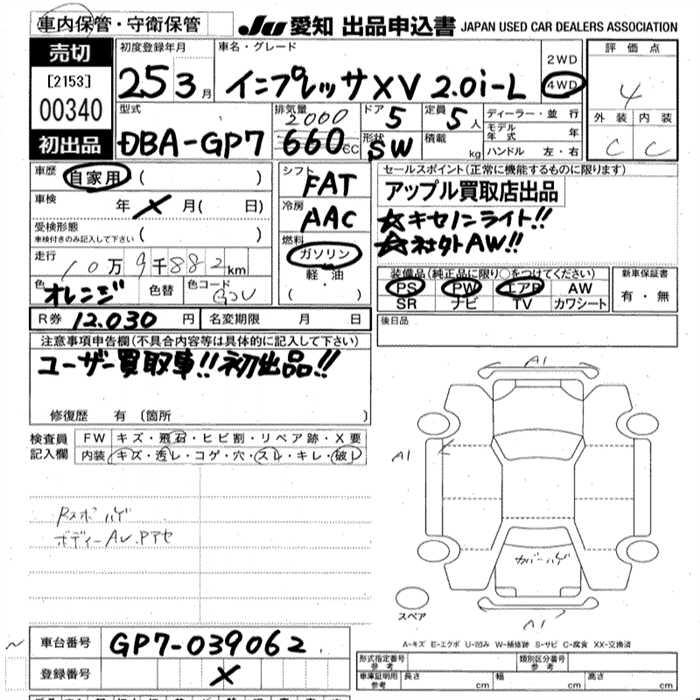 車内保管・守衛保管
JU 愛知 出品申込書 JAPAN USED CAR DEALERS ASSOCIATION
売切
[2153]
00340
初出品
初度登録年月
25 3月
車名・グレード
インプレッサXV 2.0i-L
2WD
4WD
評価点
4
外装 内装
C C
型式
DBA-GP7
排気量
2000
660cc
ドア
5
定員
5人
形状
SW
積載
kg
ディーラー・並行
モデル年式 年
ハンドル 左・右
車歴
自家用 ( )
車検
年 X 月( 日)
受検形態
車検付きのみ記入して下さい ( )
走行
10万9千882km
色
オレンジ
色替
色コード
シフト
FAT
冷房
AAC
燃料
ガソリン
軽・油
( ・ )
セールスポイント(正常に機能するものに限ります)
アップル買取店出品
☆キセノンライト!!
☆社外AW!!
装備品(純正品に限り○をつけてください)
PS PW エアB AW
SR ナビ TV カワシート
新車保証書
有・無
R券 12.030 円
名変期限 月 日
後日品
注意事項申告欄(不具合内容等は具体的に記入して下さい)
ユーザー買取車!!初出品!!
修復歴 有 〔箇所 〕
検査員記入欄
FW キズ・飛石・ヒビ割・リペア跡・X要
内装 キズ・汚レ・コゲ・穴・スレ・キレ・破レ
A1
A1
A1
カバーハゲ
スペア
車台番号
GP7-039062
登録番号
X
A-キズ E-エクボ U-凹み W-補修跡 S-サビ C-腐食 XX-交換済
形式指定番号 参考
類別区分番号 参考
車庫証明用 参考
長さ cm
幅 cm
高さ cm